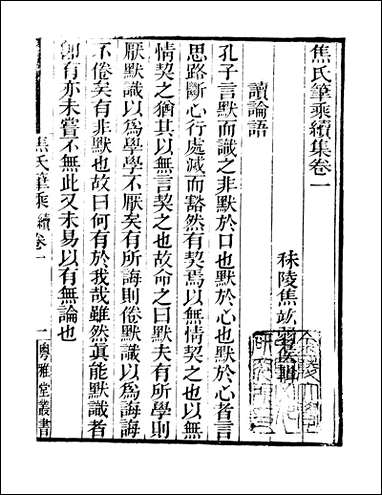 焦氏筆乘續集卷一
秣陵焦竑弱侯輯
讀論語
孔子言默而識之非默於口也默於心也默於心者言
思路斷心行處滅而豁然有契焉以無情契之也以無
情契之猶其以無言契之也故命之曰默夫有所學則
厭默識以爲學學不厭矣有所誨則倦默識以爲誨誨
不倦矣有非默也故曰何有於我哉雖然眞能默識者
卽有亦未嘗不無此又未易以有無論也
焦氏筆乘續卷一
一
粵雅堂叢書